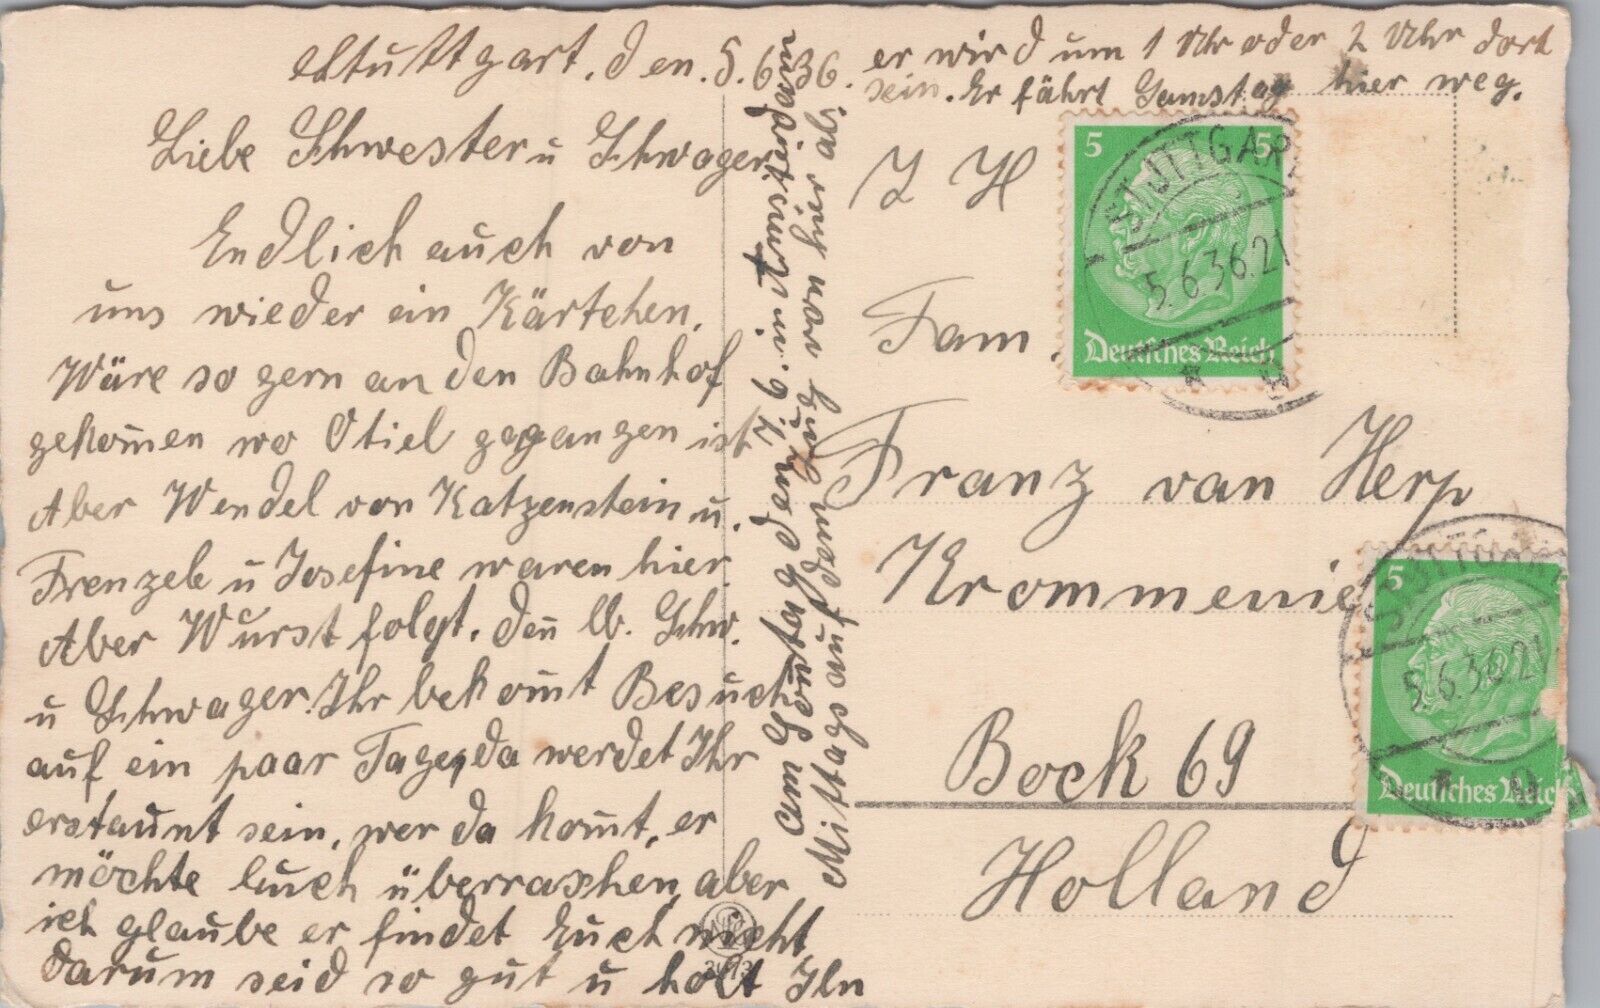 Stuttgart, den. 5. 6. 36.
Liebe Schwester u Schwager
Endlich auch von
uns wieder ein Kärtchen.
Wäre so gern an den Bahnhof
gekom̄en wo Otiel gegangen ist
Aber Wendel von Katzenstein u.
Frenzele u Josefine waren hier.
Aber Wurst folgt. Den̄ lb. Schw.
u Schwager. Ihr bekom̄t Besuch
auf ein paar Tage, da werdet Ihr
erstaunt sein, wer da kom̄t, er
möchte Euch überraschen, aber
ich glaube er findet Euch nicht,
darum seid so gut u holt Ihn
am Son̄tag den 7. 6. in Amsterdam
Mittags auf dem Zug von hier ab.
er wird um 1 Uhr oder 2 Uhr dort
sein. Er fährt Samstag hier weg.
Fam.
Franz van Herp
Krommenie
Bock 69
Holland
5 5
Deutsches Reich
STUTTGAR
5.6.36.21
5
Deutsches Reich
STUTTGAR
5.6.36.21